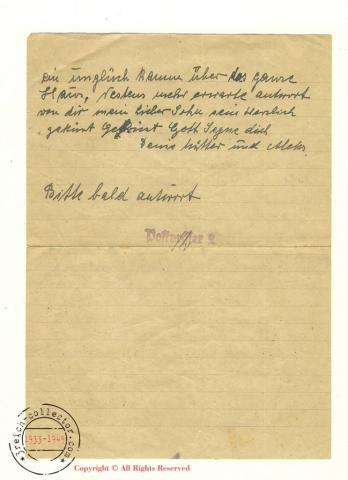 ein unglück kamm über das ganze
Haus, Nestens mehr erwarte antwort
von dir mein lieber Sohn sein Herzlich
geküst Gott Segne dich
Deine Mutter und
Bitte bald antwort
3reich-collector.com
1933-1945
Copyright © All Rights Reserved